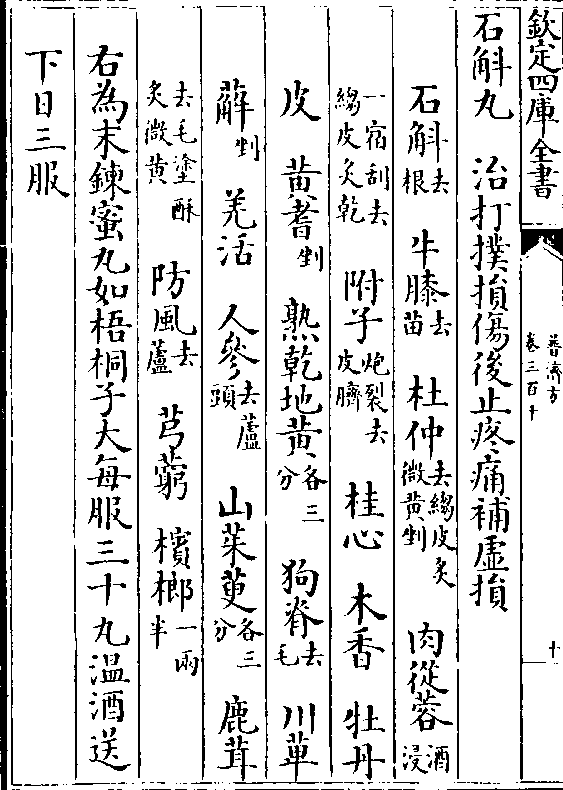 欽定四庫全書
普濟方
卷三百十
十
石斛丸 治打撲損傷後止疼痛補虛損
石斛去根 牛膝去苗 杜仲去縐皮炙微黄剉 肉從蓉酒浸
一宿刮去縐皮炙乾 附子炮裂去皮臍 桂心 木香 牡丹
皮 黄耆剉 熟乾地黄各三分 狗脊去毛 川萆
薢剉 羌活 人參去蘆頭 山茱萸各三分 鹿茸
去毛塗酥炙微黄 防風去蘆 芎藭 檳榔一兩半
右為末鍊蜜丸如梧桐子大每服三十丸温酒送
下日三服